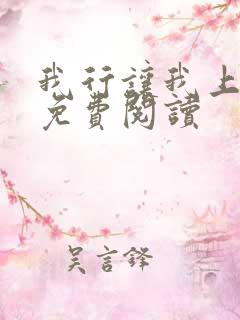 我行讓我上
免費閱讀
吳言鋒